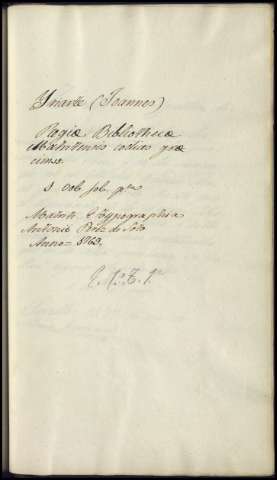 Yriarte (Joannes)
Regiæ Bibliotheca
Matritensis codices græ
cimss.
1 vol. fol. pta
Matriti E Typographia
Antonii Perez de Soto
Anno= 1769.